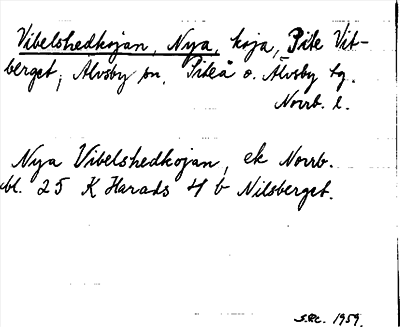 Vibelshedkojan, Nya, koja, Pite Vit-
berget, Älvsby sn, Piteå o. Älvsby tg.
Norrb. l.
Nya Vibelshedkojan, ek Norrb.
bl. 25 K Harads 4 b Nilsberget.
1959.